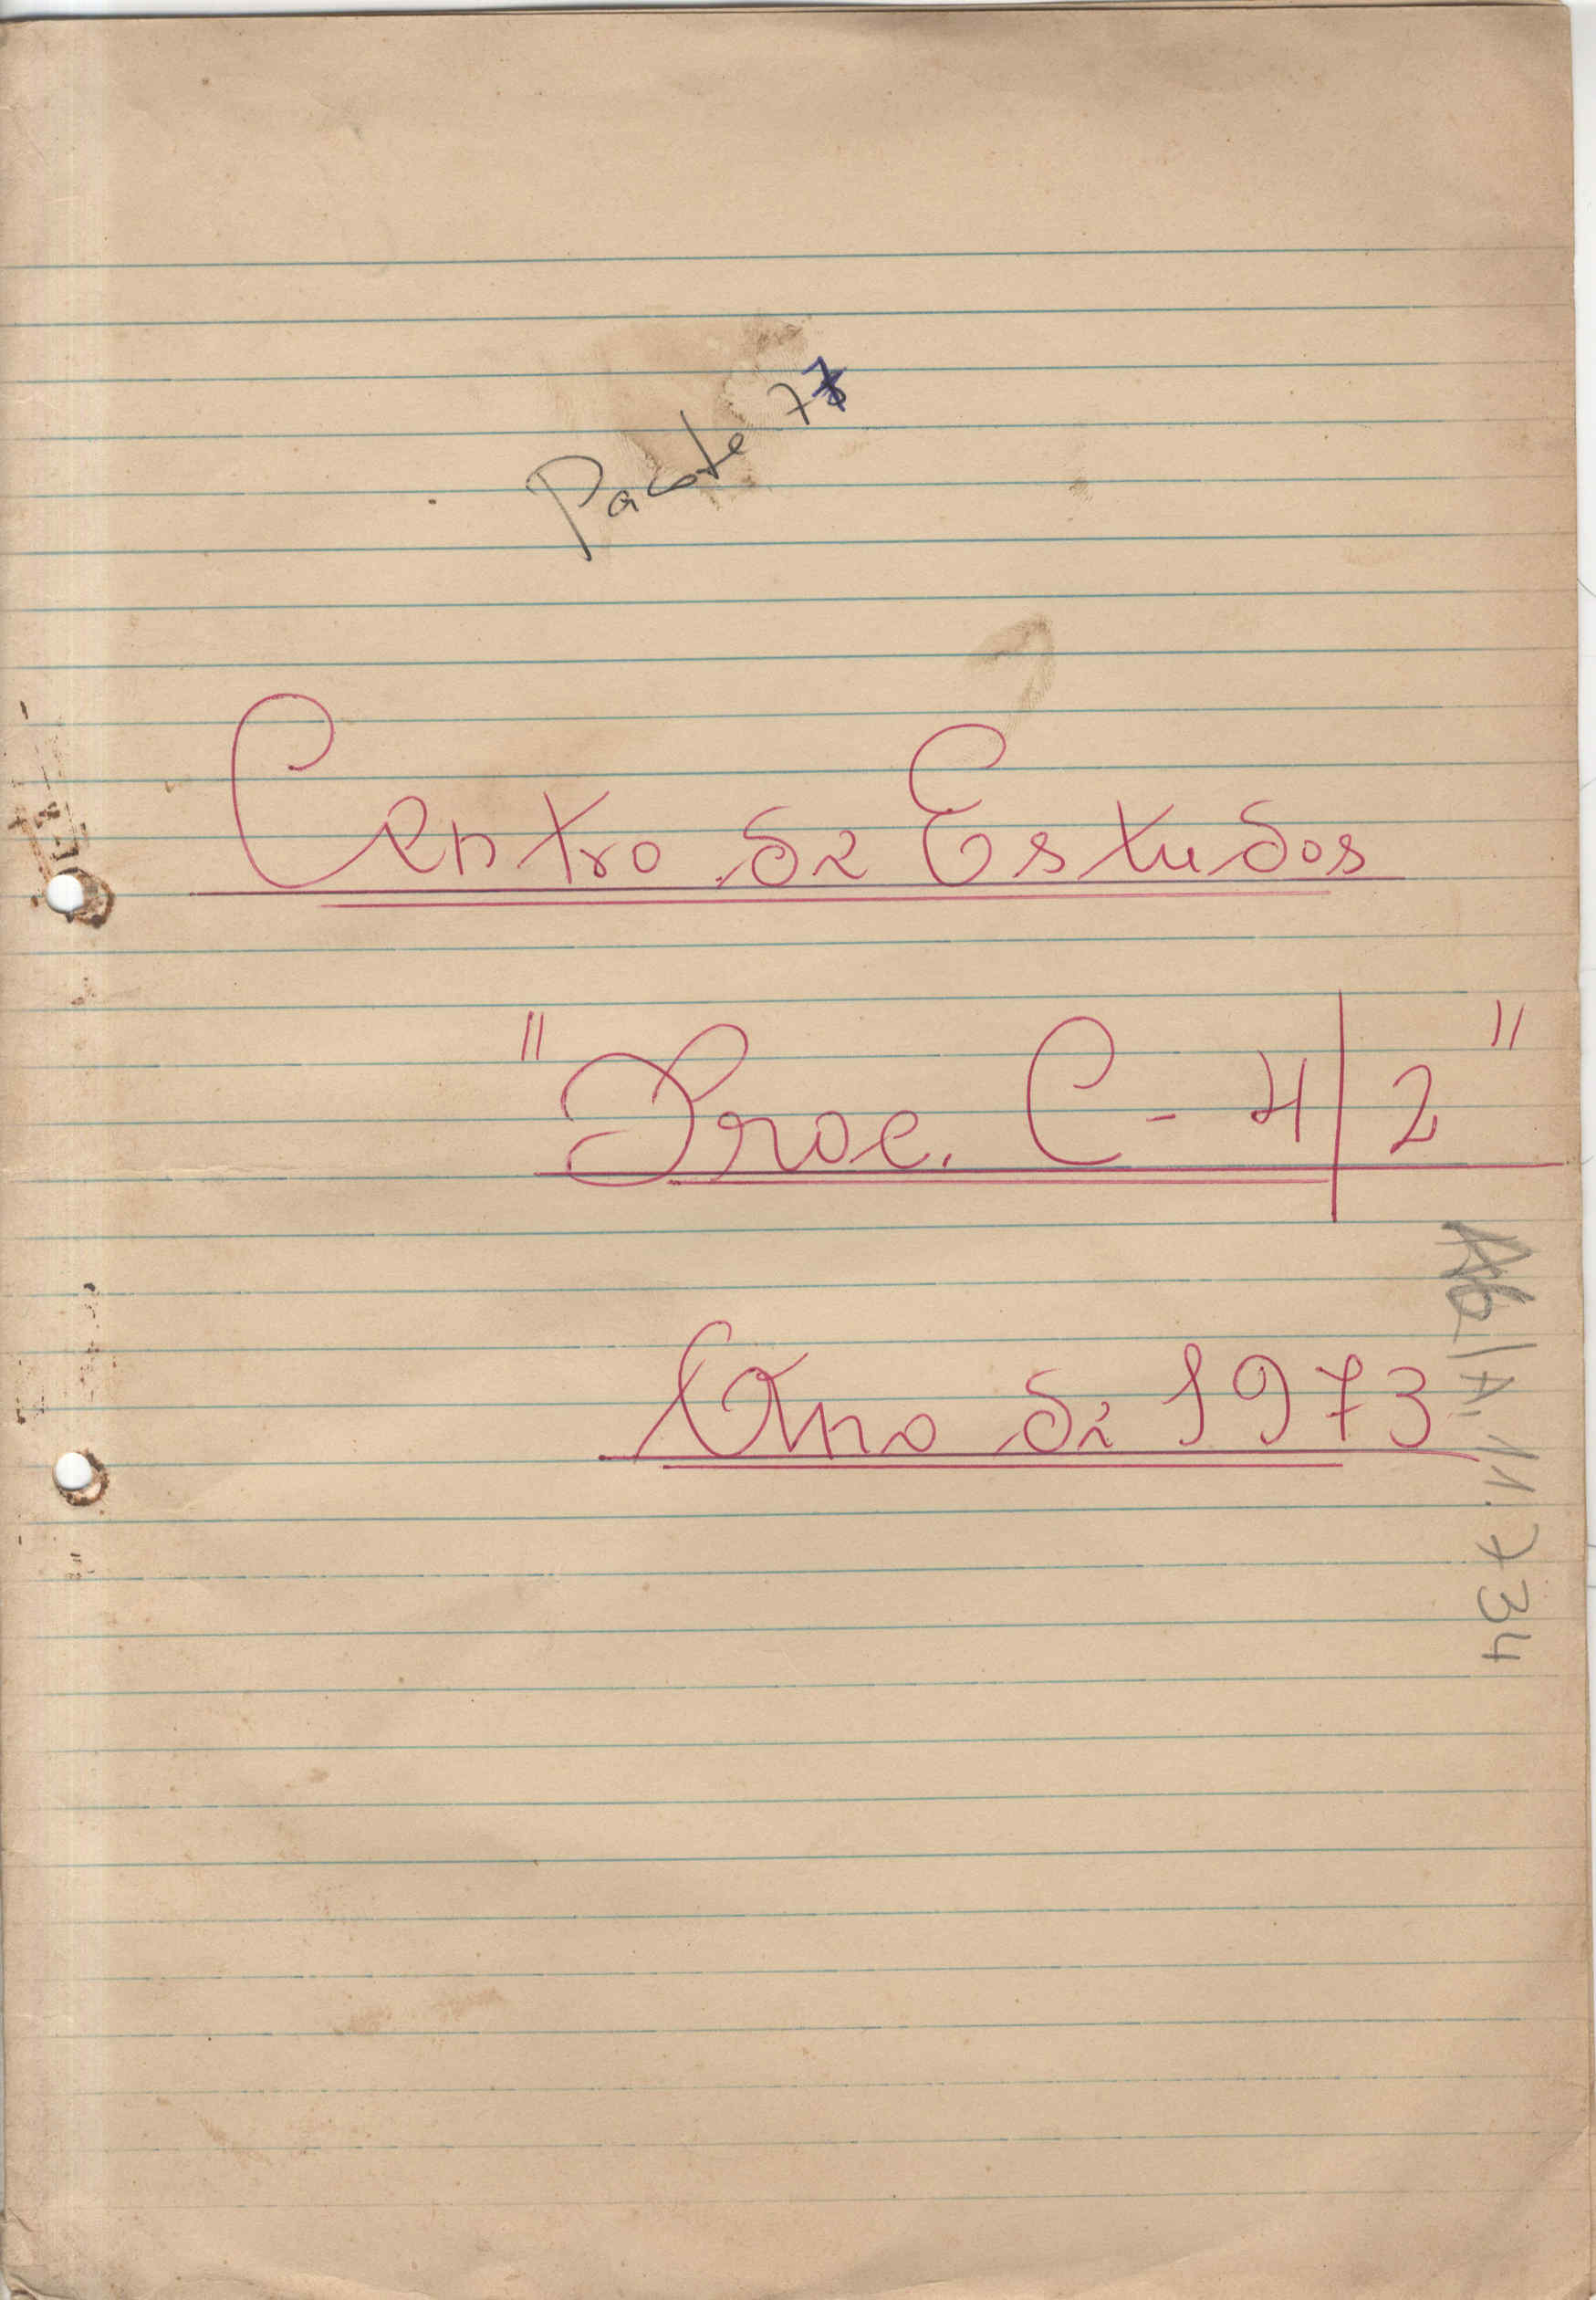 Pacote 77
Centro de Estudos
"Proc. C - 4/2"
Ano de 1973
A. 11. 734